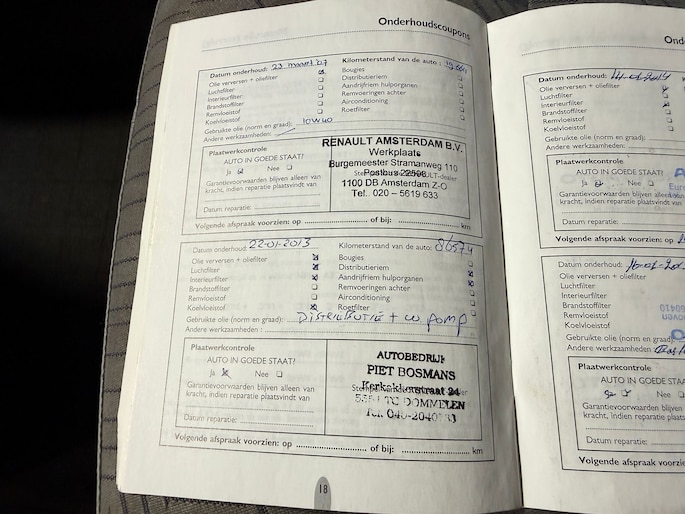 Onderhoudscoupons
Datum onderhoud: 23 maart '07 Kilometerstand van de auto:
Olie verversen + oliefilter Bougies
Luchtfilter Distributieriem
Interieurfilter Aandrijfriem hulporganen
Brandstoffilter Remvoeringen achter
Remvloeistof Airconditioning
Koelvloeistof Roetfilter
Gebruikte olie (norm en graad): 10W40
Andere werkzaamheden:
Plaatwerkcontrole
AUTO IN GOEDE STAAT?
Ja Nee
Garantievoorwaarden blijven alleen van
kracht, indien reparatie plaatsvindt van
Datum reparatie:
RENAULT AMSTERDAM B.V.
Werkplaats
Burgemeester Stramanweg 110
Postbus 22508
1100 DB Amsterdam Z-O
Tel. 020 – 5619 633
Volgende afspraak voorzien: op of bij: km
Datum onderhoud: 22-01-2013 Kilometerstand van de auto: 86574
Olie verversen + oliefilter Bougies
Luchtfilter Distributieriem
Interieurfilter Aandrijfriem hulporganen
Brandstoffilter Remvoeringen achter
Remvloeistof Airconditioning
Koelvloeistof Roetfilter
Gebruikte olie (norm en graad): DISTRIBUTIE + W POMP
Andere werkzaamheden:
Plaatwerkcontrole
AUTO IN GOEDE STAAT?
Ja Nee
Garantievoorwaarden blijven alleen van
kracht, indien reparatie plaatsvindt van
Datum reparatie:
AUTOBEDRIJF
PIET BOSMANS
Kerkakkerstraat 24
DOMMELEN
Volgende afspraak voorzien: op of bij: km
18
Datum onderhoud:
Olie verversen + oliefilter
Luchtfilter
Interieurfilter
Brandstoffilter
Remvloeistof
Koelvloeistof
Gebruikte olie (norm en graad):
Andere werkzaamheden:
Plaatwerkcontrole
AUTO IN GOEDE STAAT?
Ja Nee
Garantievoorwaarden blijven
kracht, indien reparatie plaat
Datum reparatie:
Volgende afspraak voorzien: op
Datum onderhoud:
Olie verversen + oliefilter
Luchtfilter
Interieurfilter
Brandstoffilter
Remvloeistof
Koelvloeistof
Gebruikte olie (norm en graad)
Andere werkzaamheden:
Plaatwerkcontrole
AUTO IN GOEDE STAA
Ja Nee
Garantievoorwaarden blijven
kracht, indien reparatie plaa
Datum reparatie:
Volgende afspraak voorzien: